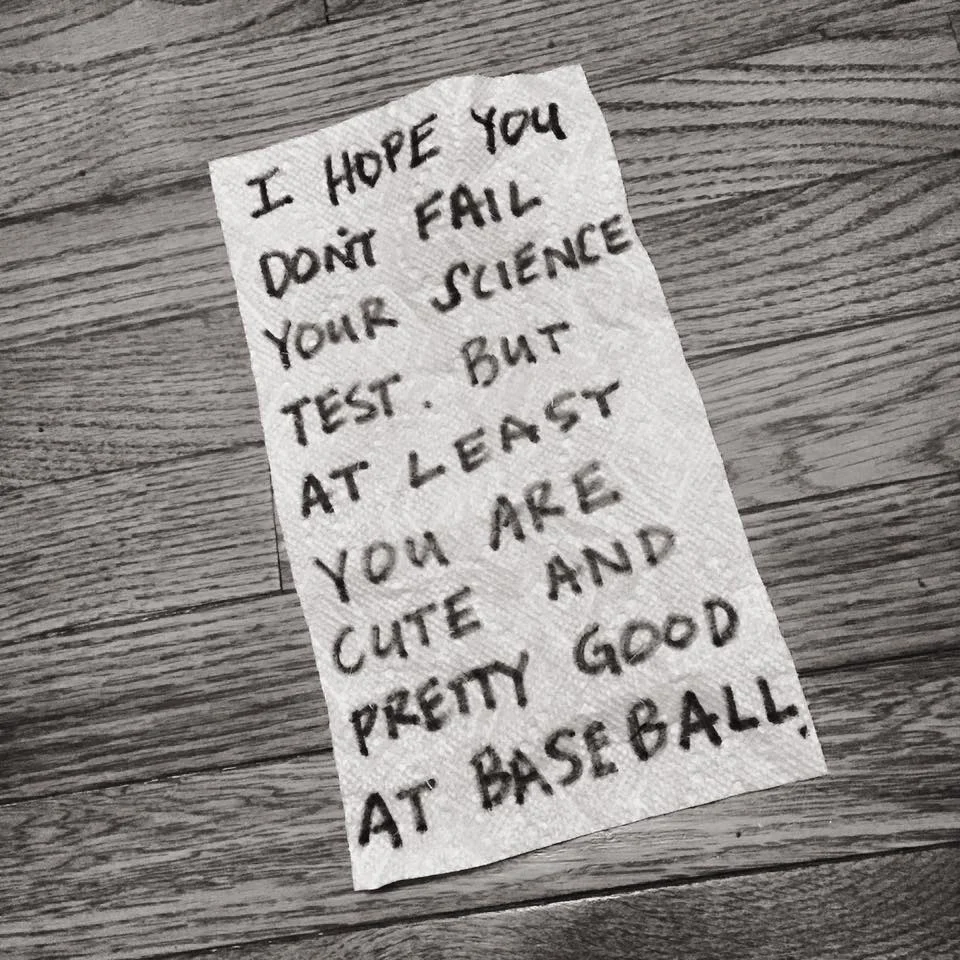 I HOPE YOU
DON'T FAIL
YOUR SCIENCE
TEST. BUT
AT LEAST
YOU ARE
CUTE AND
PRETTY GOOD
AT BASEBALL.